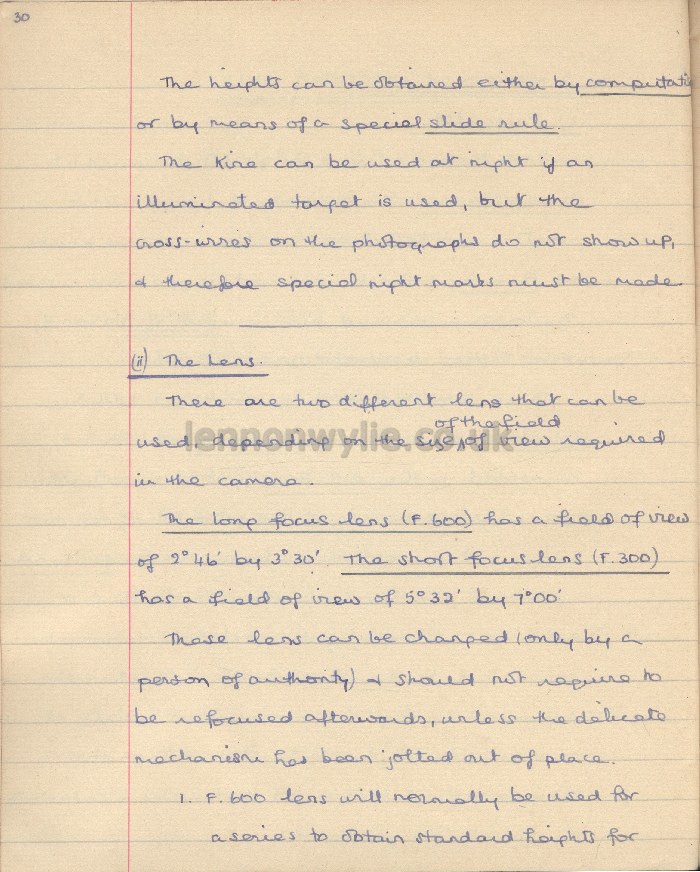 30
The heights can be obtained either by computati
or by means of a special slide rule.
The Kine can be used at night if an
illuminated target is used, but the
cross-wires on the photographs do not show up,
& therefore special night marks must be made
(ii) The Lens.
There are two different lens that can be
of the field
used, depending on the size of view required
in the camera.
The long focus lens (F.600) has a field of view
of 2° 46' by 3° 30' The short focus lens (F.300)
has a field of view of 5° 32' by 7° 00'
These lens can be changed (only by a
person of authority) & should not require to
be refocused afterwards, unless the delicate
mechanism has been jolted out of place.
1. F.600 lens will normally be used for
a series to obtain standard heights for
lennonwylie.co.uk